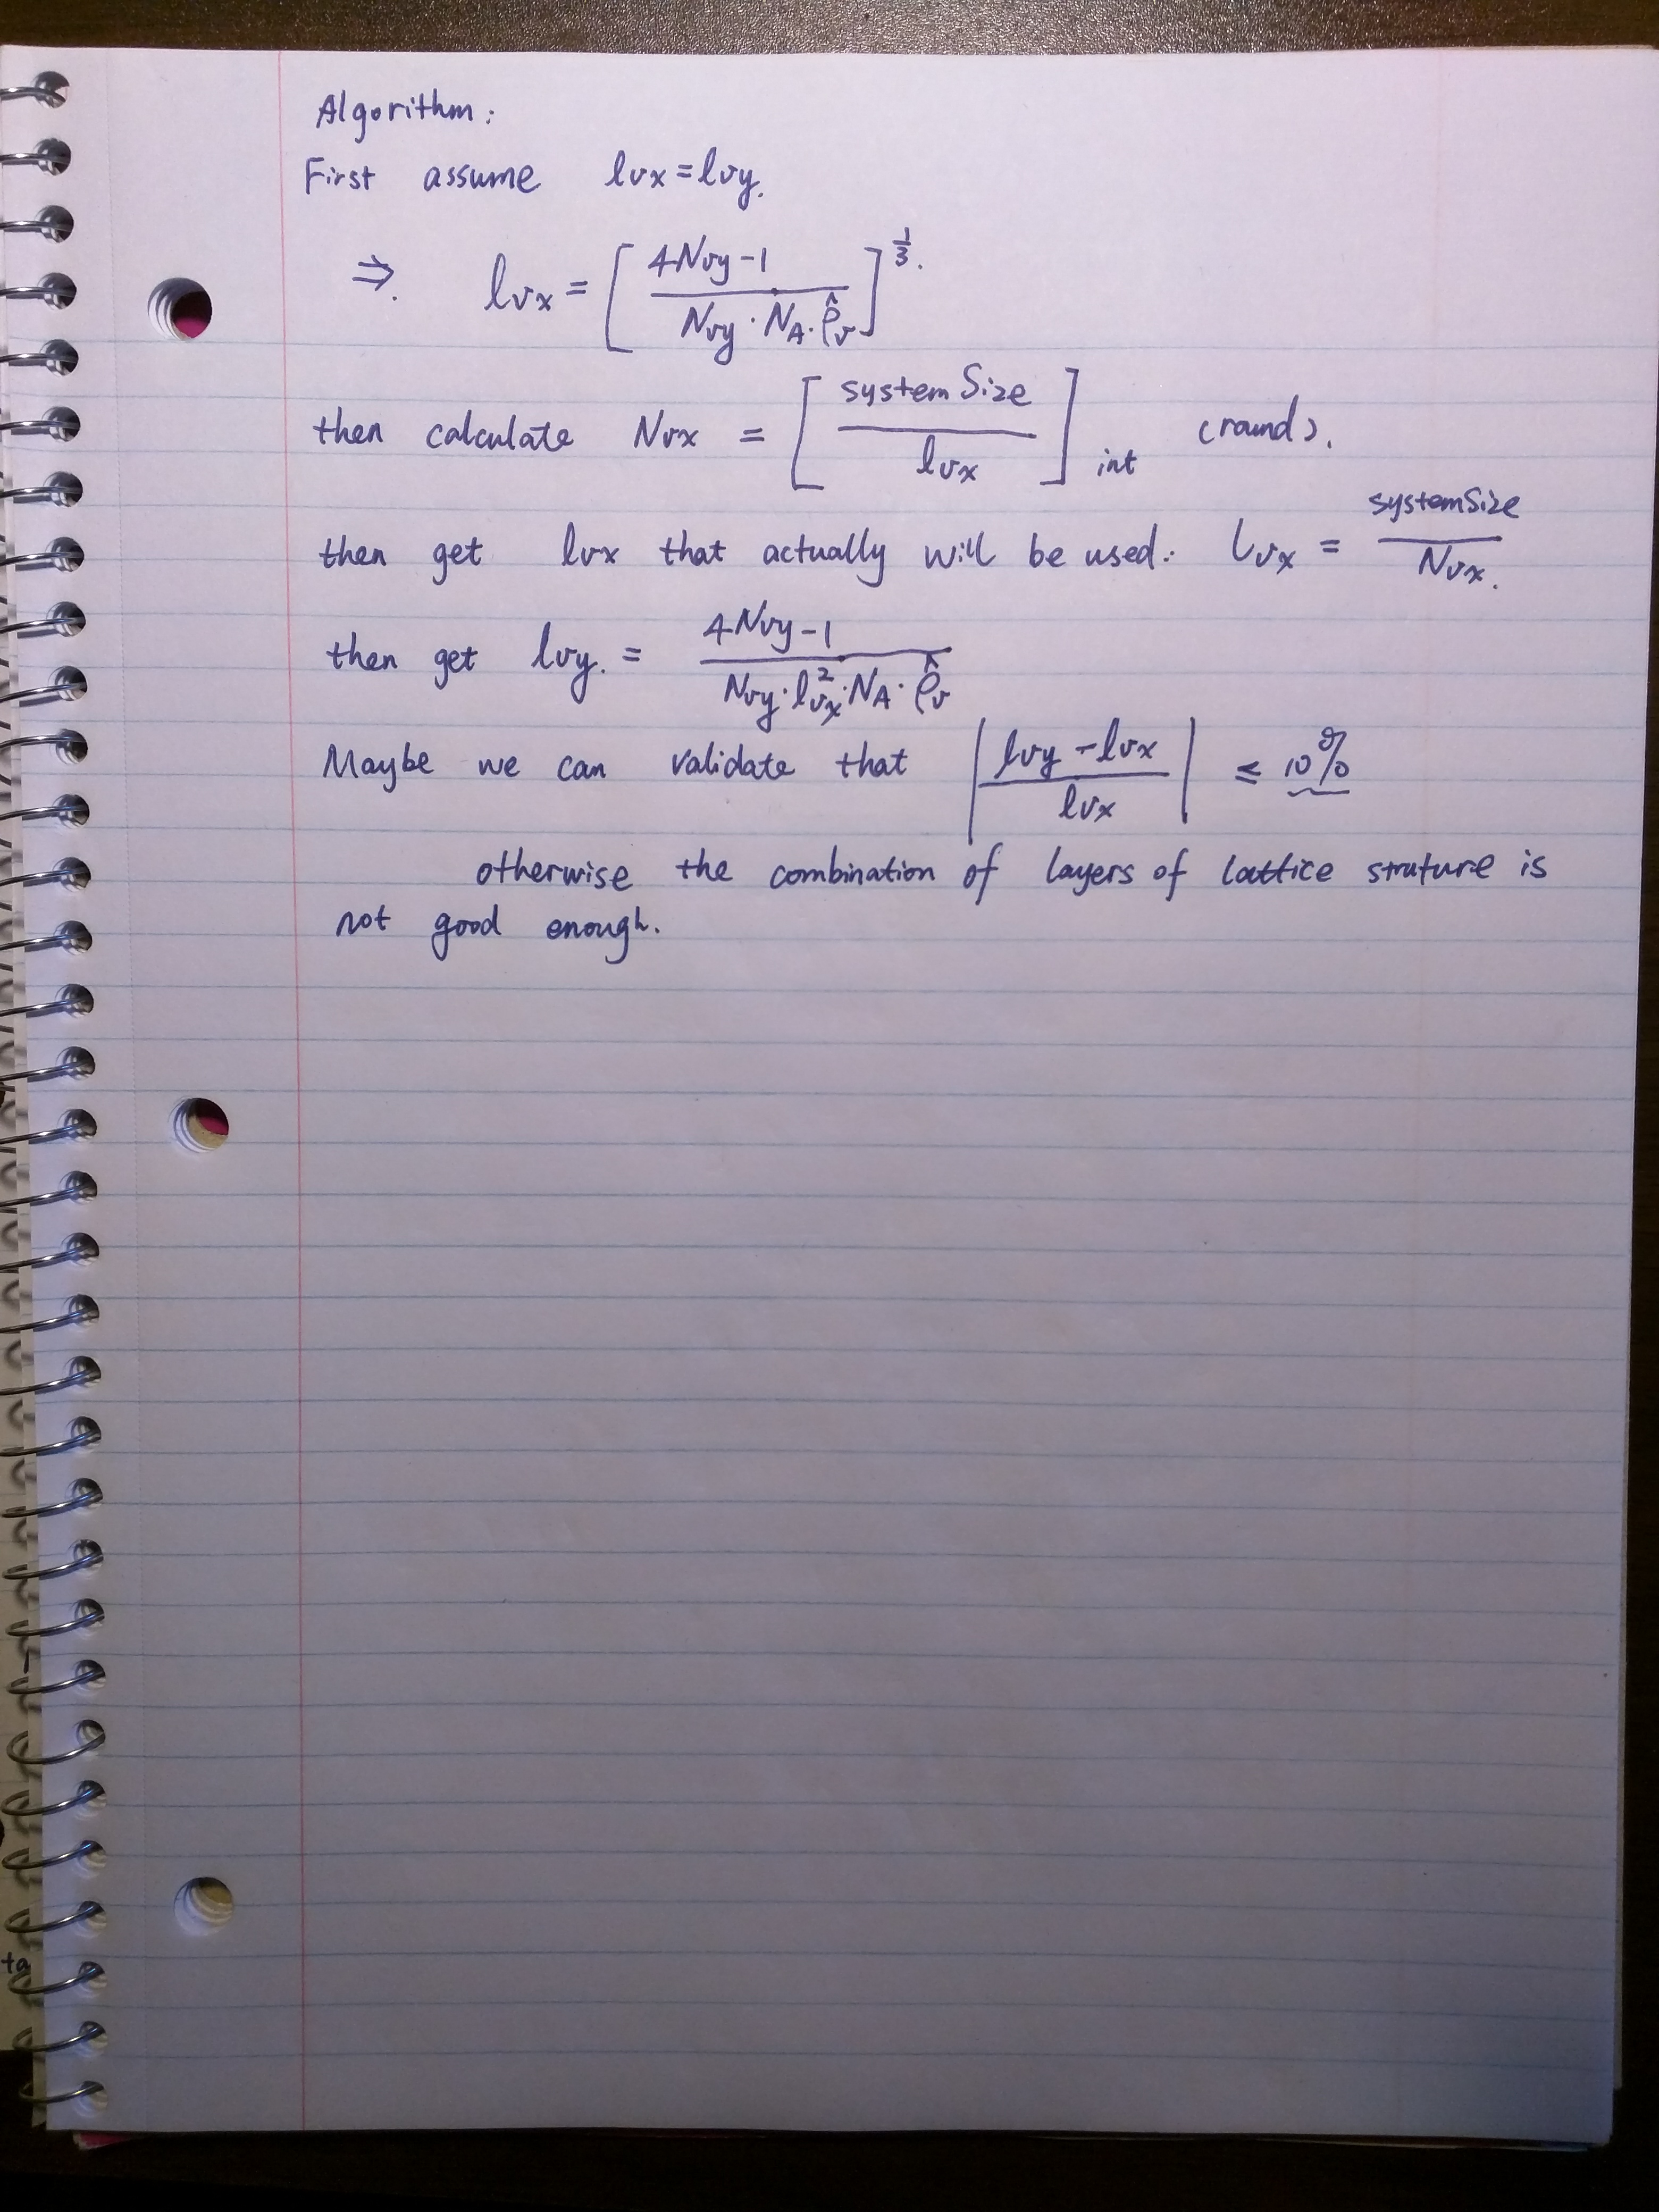 Algorithm:
First assume lvx = lvy.
⇒. lvx = [ (4Nvy - 1) / (Nvy · NA · ρ̂v) ]^(1/3).
then calculate Nvx = [ system Size / lvx ] int (round).
then get lvx that actually will be used: lvx = systemSize / Nvx.
then get lvy. = (4Nvy - 1) / (Nvy · lvx² · NA · ρ̂v)
Maybe we can validate that | (lvy - lvx) / lvx | ≤ 10%
otherwise the combination of layers of lattice struture is
not good enough.
ta